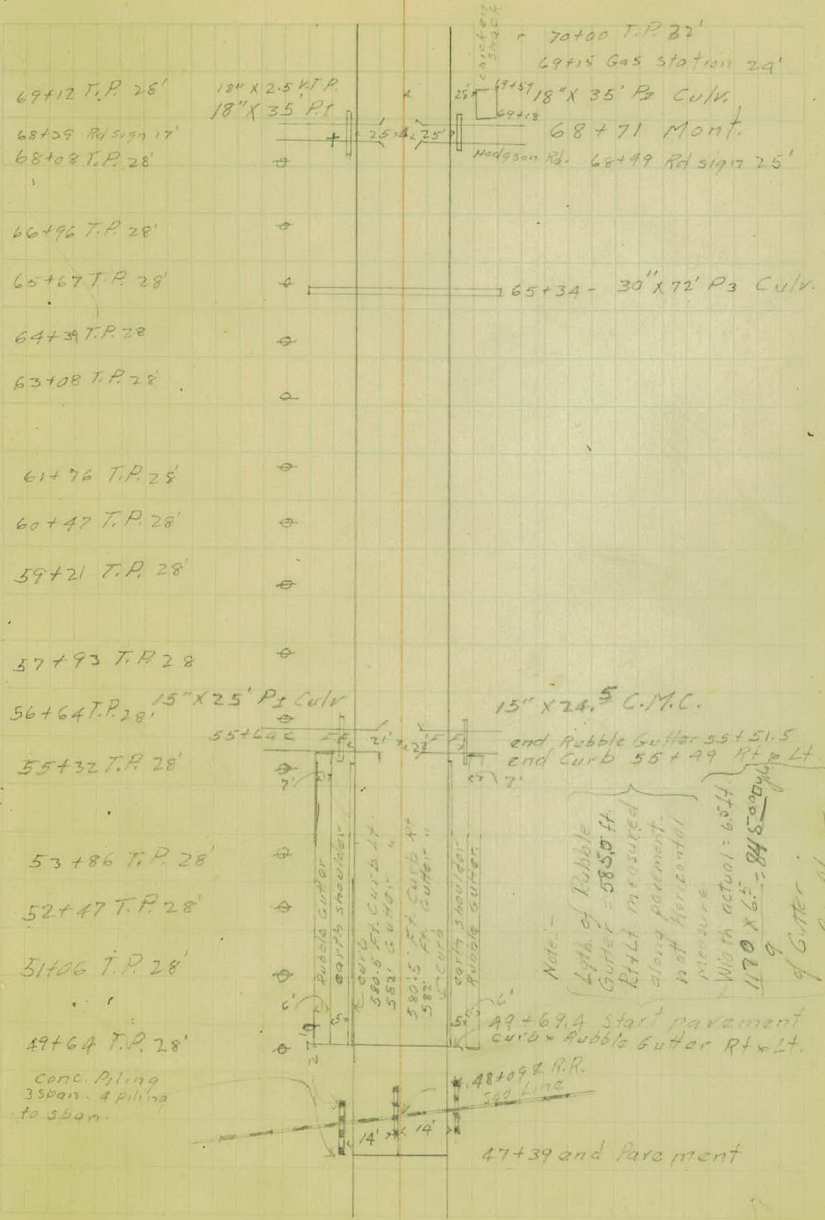 70+00 T.P. 32'
69+15 Gas station 29'
69+12 T.P. 28'
18" X 35 P1
18" X 35' P2 Culv.
69+59
69+18
68+71 Mont.
Hodgson Rd. 68+99 Rd sign 25'
68+39 Rd sign 17'
68+08 T.P. 28'
25' 25'
66+96 T.P. 28'
65+67 T.P. 28'
65+34 - 30" X 72' P3 Culv.
64+39 T.P. 28
63+08 T.P. 28'
61+76 T.P. 28'
60+47 T.P. 28'
59+21 T.P. 28'
57+93 T.P. 28
56+64 T.P. 28'
15" X 25' P1 Culv
15" X 24.5 C.M.C.
55+64
end Rubble Gutter 55+51.5
end Curb 55+49 Rt & Lt
55+32 T.P. 28'
7'
7'
53+86 T.P. 28'
52+47 T.P. 28'
51+06 T.P. 28'
49+64 T.P. 28'
Rubble Gutter
earth shoulder
curb
580.5 Ft. Curb Lt.
582' Gutter "
580.5' Ft. Curb Rt
582' Ft. Gutter "
Curb
earth shoulder
Rubble Gutter
Note:-
Lgth. of Rubble
Gutter = 585.0 ft.
Rt & Lt measured
along pavement.
not Horizontal
measure.
Width actual = 6.5 ft.
1170 X 6.5 = 845
9
of Gutter.
6'
5'
6'
5'
49+69.4 start pavement
curb & Rubble Gutter Rt & Lt.
Conc. Piling
3 span. 4 piling
to span.
48+09 R.R.
Soo Line
14' 14'
47+39 end Pavement